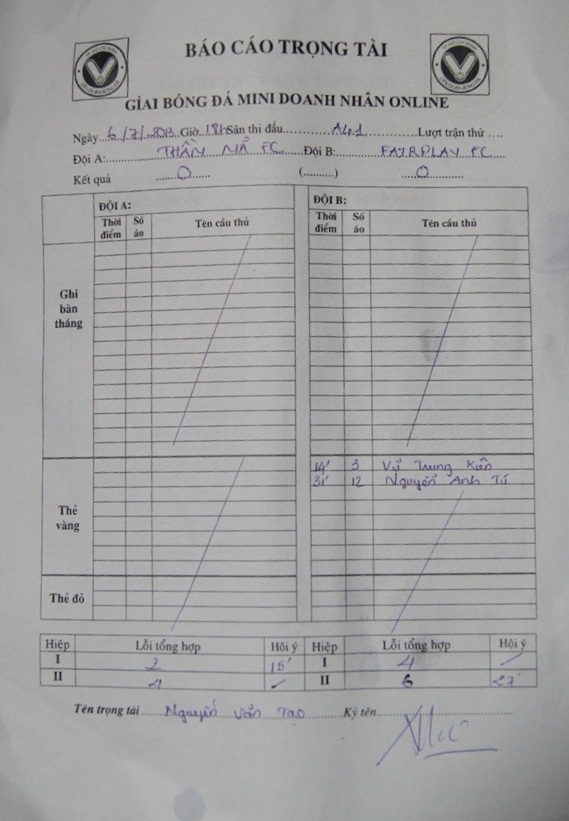 BÁO CÁO TRỌNG TÀI
GIẢI BÓNG ĐÁ MINI DOANH NHÂN ONLINE
Ngày 6/7/2013 Giờ 18h Sân thi đấu A41 Lượt trận thứ
Đội A: THẦN MÃ FC Đội B: FAIRPLAY FC
Kết quả 0 (..........) 0
ĐỘI A: ĐỘI B:
Thời điểm Số áo Tên cầu thủ Thời điểm Số áo Tên cầu thủ
Ghi bàn thắng
Thẻ vàng 14' 3 Vũ Trung Kiên
31' 12 Nguyễn Anh Tú
Thẻ đỏ
Hiệp Lỗi tổng hợp Hội ý Hiệp Lỗi tổng hợp Hội ý
I 2 15' I 4
II 4 II 6 27'
Tên trọng tài Nguyễn Văn Tạo Ký tên